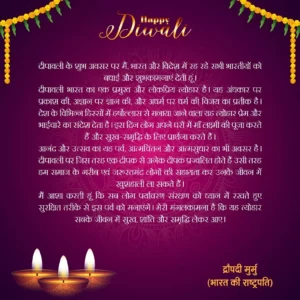 Happy
Diwali
दीपावली के शुभ अवसर पर मैं, भारत और विदेश में रह रहे सभी भारतीयों को
बधाई और शुभकामनाएं देती हूं।
दीपावली भारत का एक प्रमुख और लोकप्रिय त्योहार है। यह अंधकार पर
प्रकाश की, अज्ञान पर ज्ञान की, और अधर्म पर धर्म की विजय का प्रतीक है।
देश के विभिन्न हिस्सों में हर्षोल्लास से मनाया जाने वाला यह त्योहार प्रेम और
भाईचारे का संदेश देता है। इस दिन लोग अपने घरों में मां लक्ष्मी की पूजा करते
हैं और सुख-समृद्धि के लिए प्रार्थना करते हैं।
आनंद और उत्सव का यह पर्व, आत्मचिंतन और आत्मसुधार का भी अवसर है।
दीपावली पर जिस तरह एक दीपक से अनेक दीपक प्रज्वलित होते हैं उसी तरह
हम समाज के गरीब एवं जरूरतमंद लोगों की सहायता कर उनके जीवन में
खुशहाली ला सकते हैं।
मैं आशा करती हूं कि सब लोग पर्यावरण संरक्षण को ध्यान में रखते हुए
सुरक्षित तरीके से इस पर्व को मनाएंगे। मेरी मंगलकामना है कि यह त्योहार
सबके जीवन में सुख, शांति और समृद्धि लेकर आए।
द्रौपदी मुर्मु
(भारत की राष्ट्रपति)